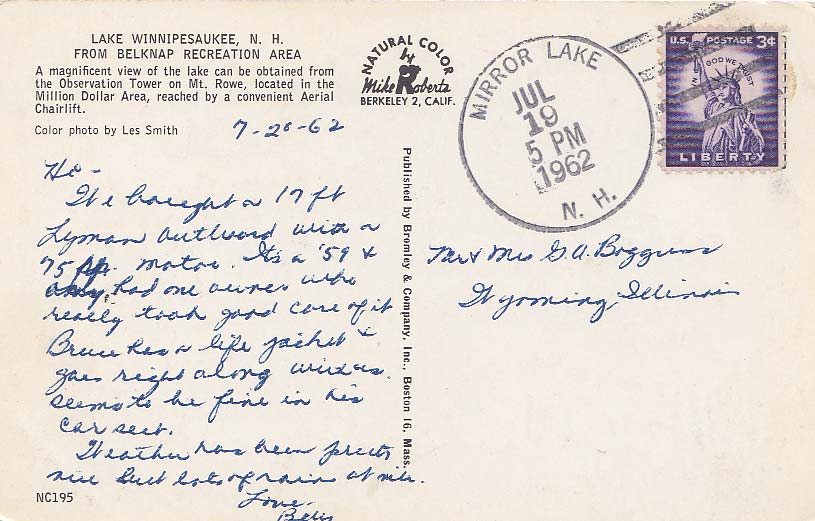 LAKE WINNIPESAUKEE, N. H.
FROM BELKNAP RECREATION AREA
A magnificent view of the lake can be obtained from
the Observation Tower on Mt. Rowe, located in the
Million Dollar Area, reached by a convenient Aerial
Chairlift.
Color photo by Les Smith
7-20-62
Hi -
We bought a 17 ft
Lyman outboard with a
75 hp. motor. Its a '59 &
only had one owner who
really took good care of it
Bruce has a life jacket &
goes right along with us.
seems to be fine in his
car seat.
Weather has been pretty
nice but lots of rain at nite.
Love-
NC195
NATURAL COLOR
by
Mike Roberts
BERKELEY 2, CALIF.
Published by Bromley & Company, Inc., Boston 16, Mass.
MIRROR LAKE
JUL
19
5 PM
1962
N. H.
U.S. POSTAGE 3¢
IN GOD WE TRUST
LIBERTY
Mr & Mrs G. A. Boggess
Wyoming, Illinois